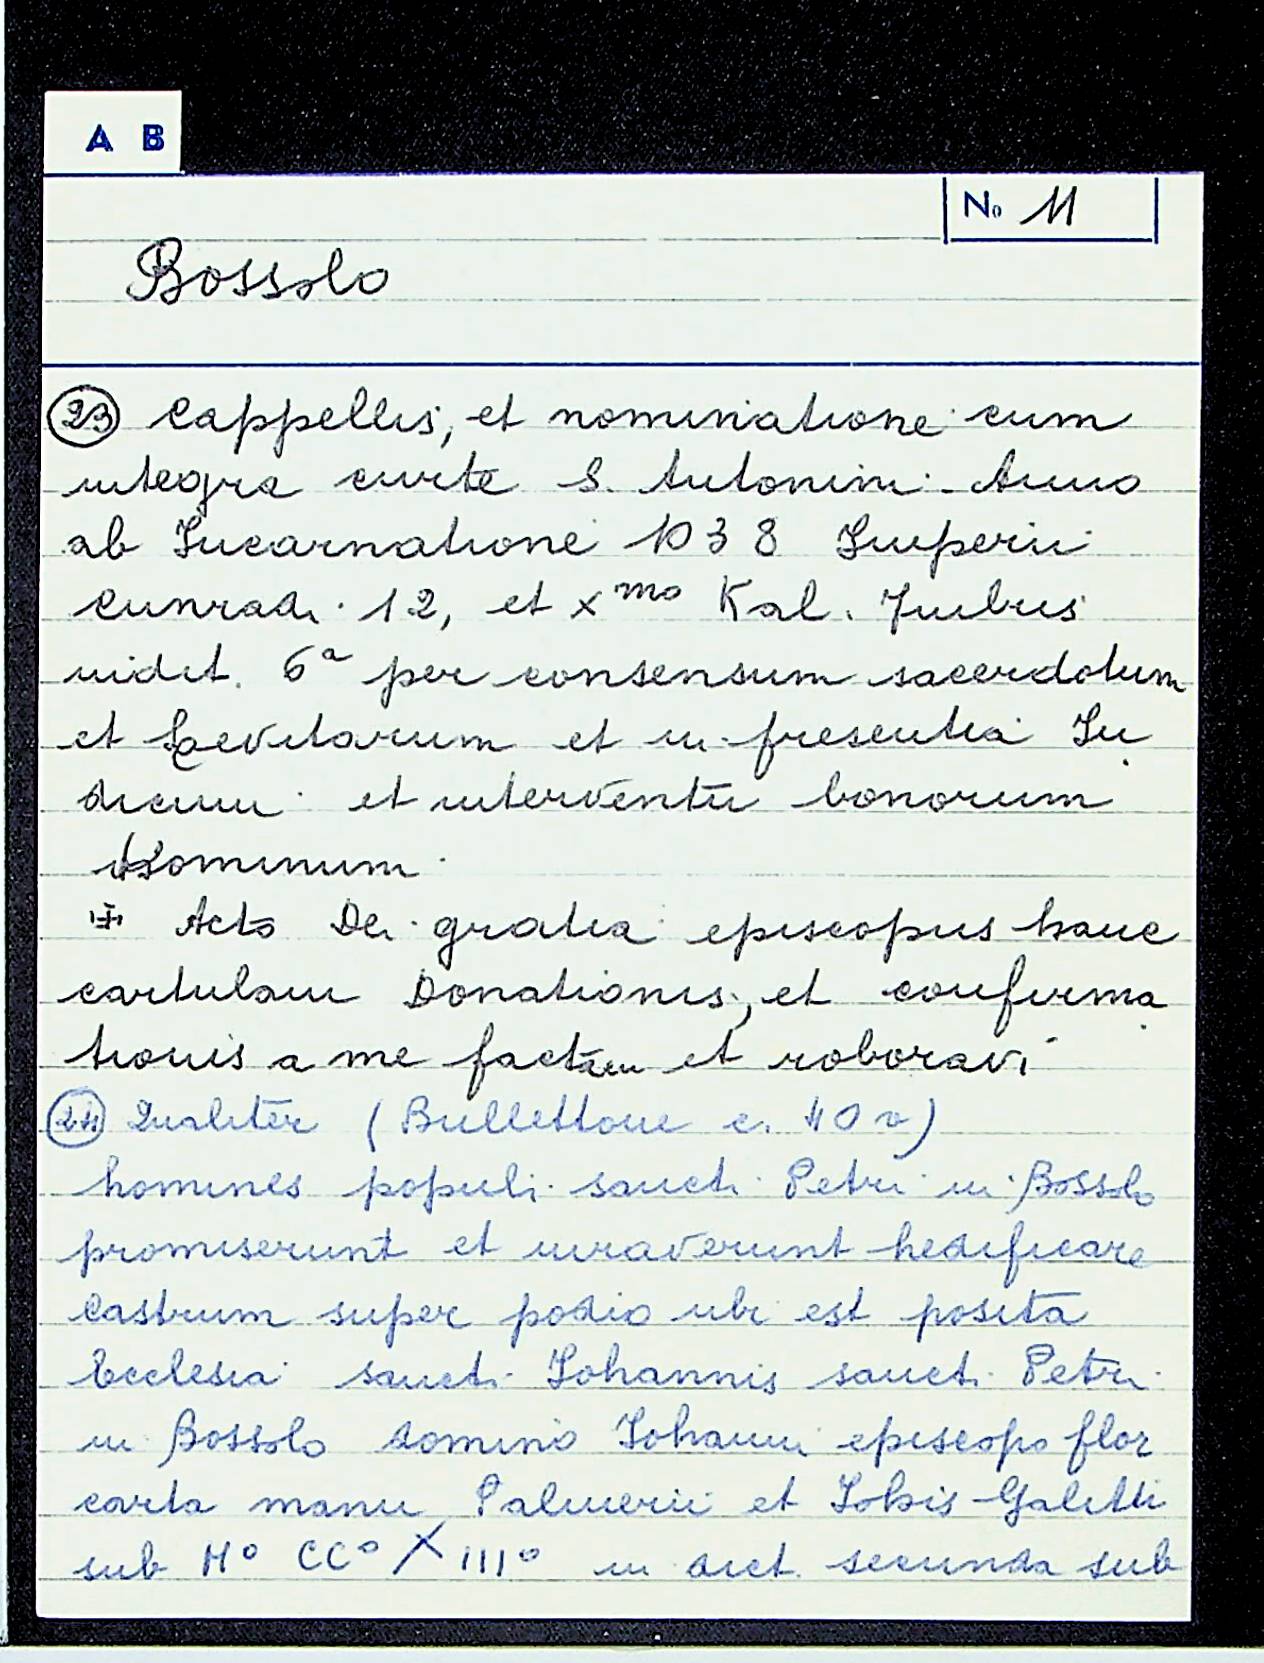 A B
No 11
Bossolo
23 Cappellis, et nominatione cum
integra curte S. Antonini. Anno
ab Incarnatione 1038 Imperii
Cunradi 12, et Xmo Kal. Jubris
indit. 6a per consensum sacerdotum
et Laevitarum et in presentia Iu
dicum et interventu bonorum
hominum
Acto Dei gratia episcopus hanc
cartulam Donationis, et confirma
tionis a me factam et roboravi
24 Qualiter (Bullettone c. 40 v)
homines populi sancti Petri in Bossolo
promiserunt et iuraverunt hedificare
Castrum super podio ubi est posita
Ecclesia sancti Iohannis sancti Petri
in Bossolo domino Iohanni episcopo flor
carta manu Palmerii et Iohis Galitti
sub Mo CCo XIIIo in dict. secunda sub